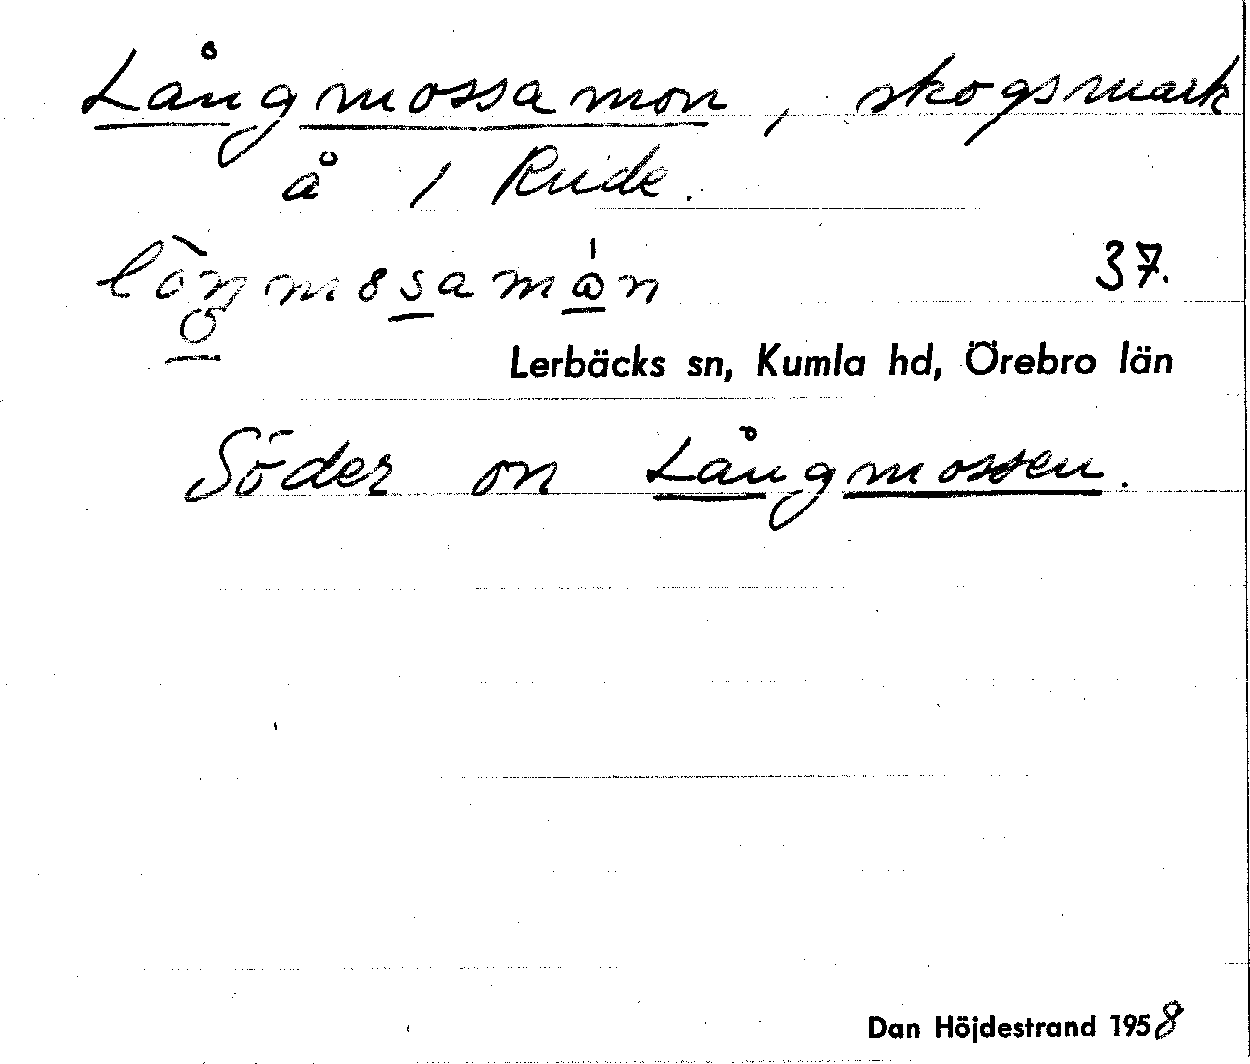 Långmossamon, skogsmark
å 1 Rude.
37.
Lerbäcks sn, Kumla hd, Örebro län
Söder om Långmossen.
Dan Höjdestrand 1958